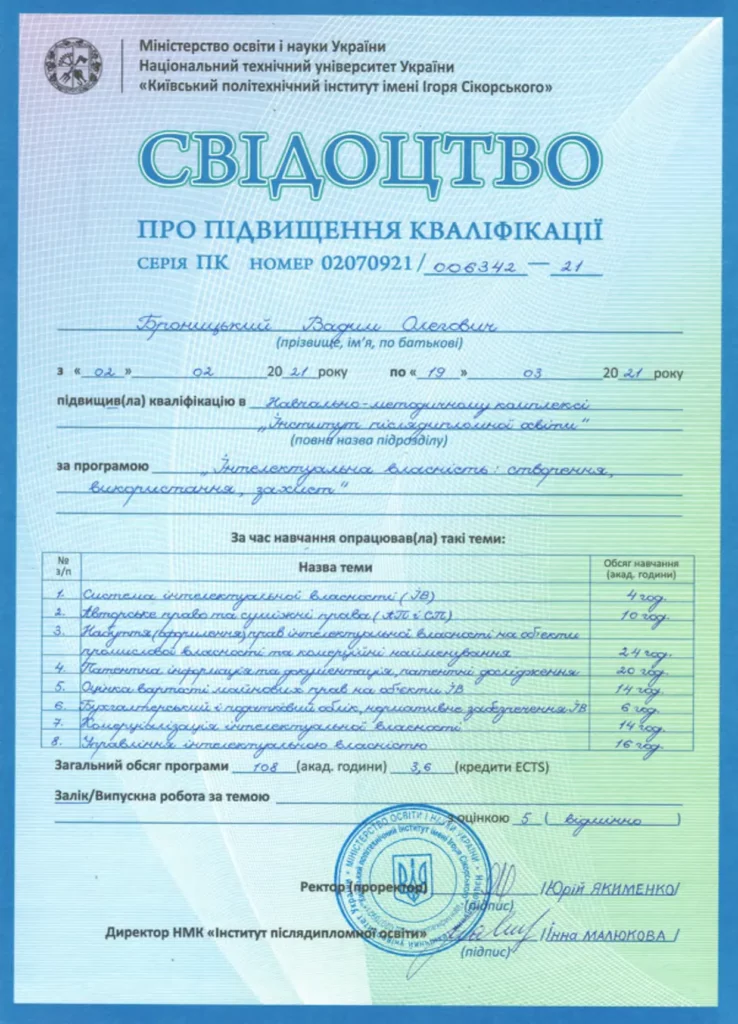 Міністерство освіти і науки України
Національний технічний університет України
«Київський політехнічний інститут імені Ігоря Сікорського»
СВІДОЦТВО
ПРО ПІДВИЩЕННЯ КВАЛІФІКАЦІЇ
СЕРІЯ ПК НОМЕР 02070921/ 006342 — 21
Броницький Вадим Олегович
(прізвище, ім'я, по батькові)
з « 02 » 02 20 21 року по « 19 » 03 20 21 року
підвищив(ла) кваліфікацію в Навчально-методичному комплексі
„Інститут післядипломної освіти"
(повна назва підрозділу)
за програмою „Інтелектуальна власність: створення,
використання, захист"
За час навчання опрацював(ла) такі теми:
№ з/п Назва теми Обсяг навчання (акад. години)
1. Система інтелектуальної власності (ІВ) 4 год.
2. Авторське право та суміжні права (АП і СП) 10 год.
3. Набуття (оформлення) прав інтелектуальної власності на об'єкти
промислової власності та комерційні найменування 24 год.
4. Патентна інформація та документація, патентні дослідження 20 год.
5. Оцінка вартості майнових прав на об'єкти ІВ 14 год.
6. Бухгалтерський і податковий облік, нормативне забезпечення ІВ 6 год.
7. Комерціалізація інтелектуальної власності 14 год.
8. Управління інтелектуальною власністю 16 год.
Загальний обсяг програми 108 (акад. години) 3,6 (кредити ECTS)
Залік/Випускна робота за темою
з оцінкою 5 ( відмінно )
Ректор (проректор) /Юрій ЯКИМЕНКО/
(підпис)
Директор НМК «Інститут післядипломної освіти» /Інна МАЛЮКОВА /
(підпис)